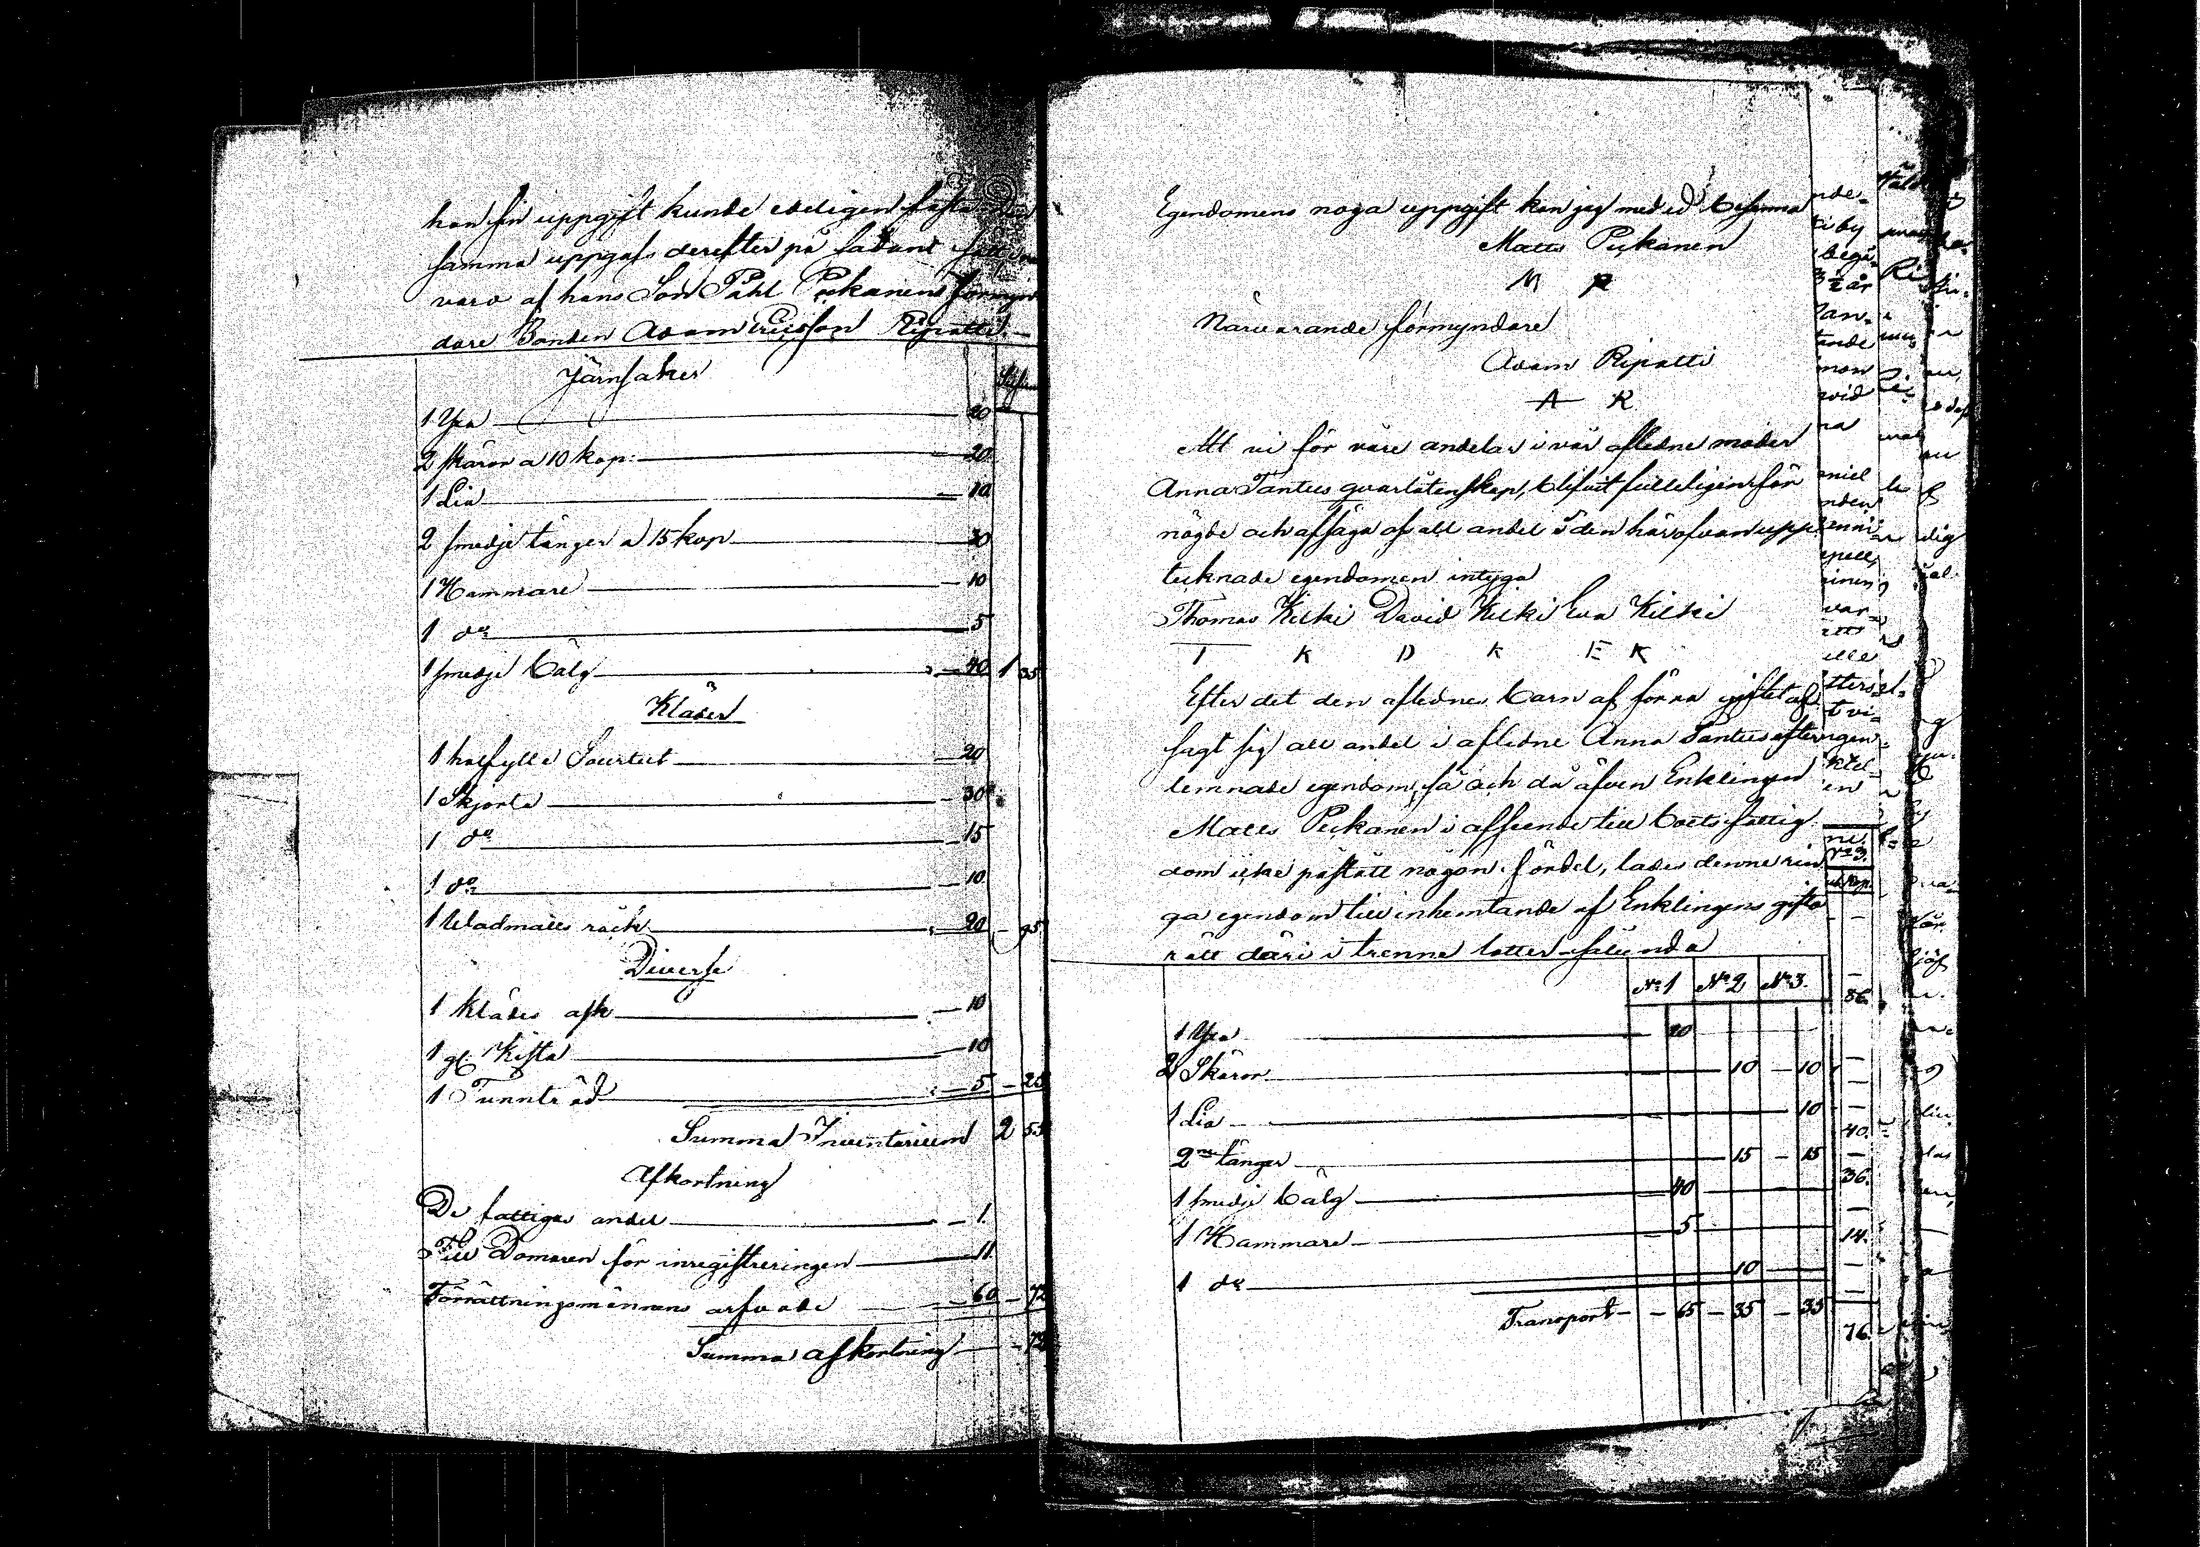 han sin uppgift kunde edeligen fästa Den
samma uppgafs derefter på sådant sätt
varo af hans Son Påhl Pukanens förmyn
dare Bonden Adam Ericsson Ripatti.
Järnsaker
1 Yxa 20
2 skäror a 10 kop: 20
1 Lia 10
2 smedje tänger a 15 kop 30
1 Hammare 10
1 do 5
1 smedje bälg 40 1 35
Kläder
1 halfyllt Sourtut 20
1 Skjorta 30
1 do 15
1 do 10
1 Wadmals råck 20 - 95
Diverse
1 Klädes ask 10
1 gl. Kista 10
1 Tunnträd 5 - 25
Summa Inventarium 2 55
Afkortning
De fattigas andel 1.
Till Domaren för inregistreringen 11.
Förrättningsmännens arfvode 60 - 72
Summa afkortning - 72
Egendomens noga uppgift kan jag med ed besanna
Matts Pukanen
M P
Närvarande förmyndare
Adam Ripatti
A R
Att vi för våre andelar i vår aflednе moder
Anna Tantus qvarlåtenskap, blifvit fulleligen för
nögde och afsäga oss all andel i den härofvan upp
tecknade egendomen intyga
Thomas Kilki David Kilki Eva Kilki
T K D K E K
Efter det den aflednes barn af förra giftet af
sagt sig all andel i aflednе Anna Tantus efter
lemnade egendom, så och då äfven Enklingen
Matts Pukanen i afseende till boets fattig
dom icke påstått någon fördel, lades denne rin
ga egendom till inhemtande af Enklingens gifto
rätt däri i trenne lotter sålunda
No 1 No 2 No 3.
1 Yxa 20
2 Skäror 10 - 10
1 Lia 10
2ne tänger 15 - 15
1 smedje bälg 40
1 Hammare 5
1 do 10
Transport - 65 - 35 - 35